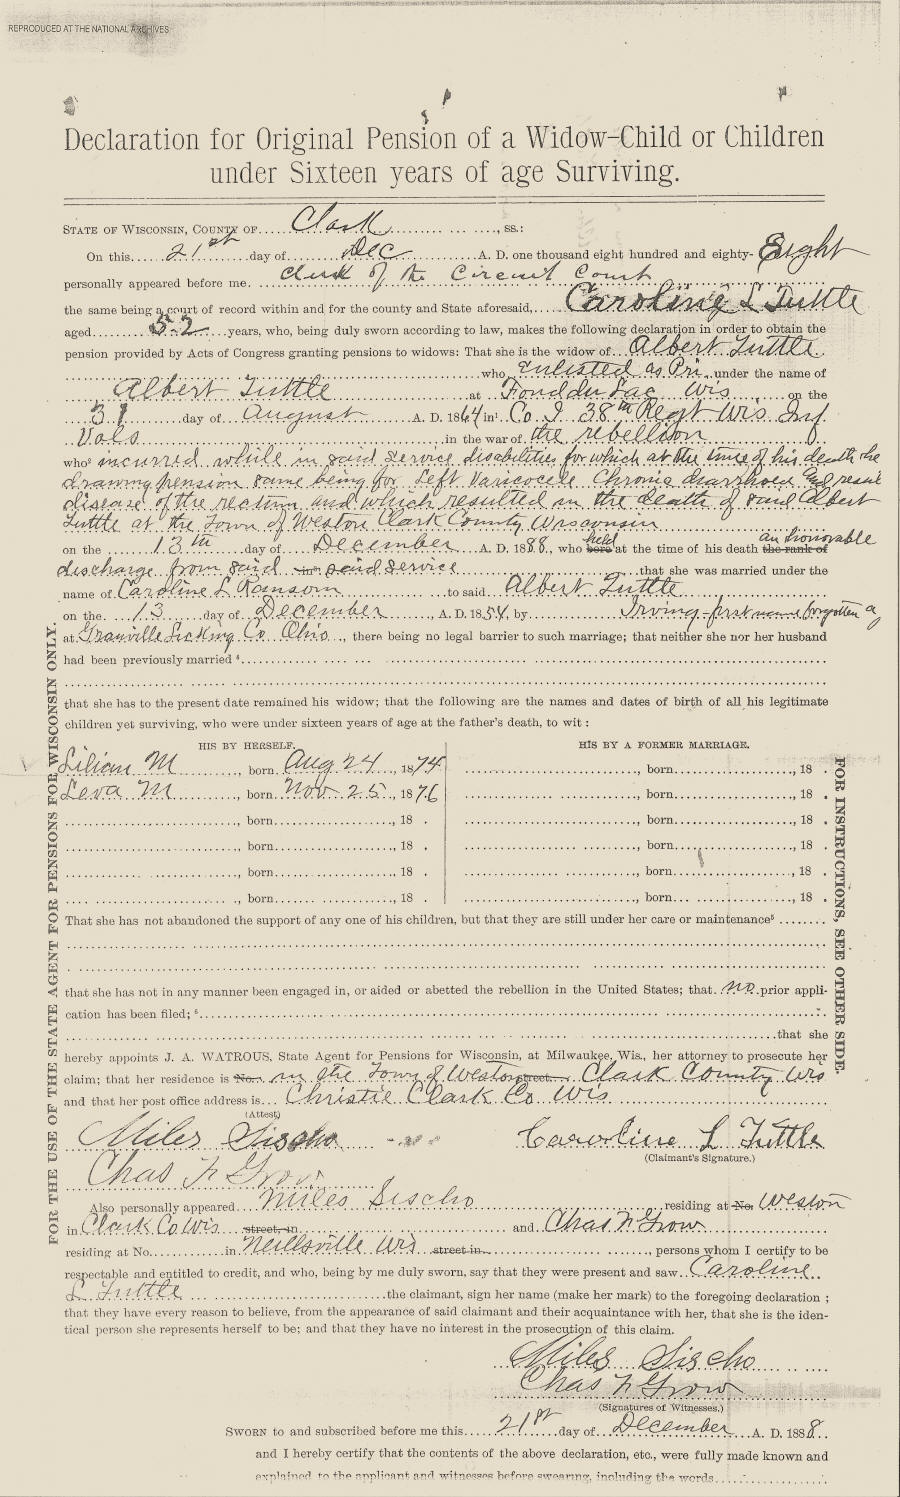 REPRODUCED AT THE NATIONAL ARCHIVES
Declaration for Original Pension of a Widow–Child or Children
under Sixteen years of age Surviving.
STATE OF WISCONSIN, COUNTY OF Clark, ss.:
On this 21st day of Dec A. D. one thousand eight hundred and eighty- Eight
personally appeared before me clerk of the Circuit Court
the same being a court of record within and for the county and State aforesaid, Caroline L Tuttle
aged 52 years, who, being duly sworn according to law, makes the following declaration in order to obtain the
pension provided by Acts of Congress granting pensions to widows: That she is the widow of Albert Tuttle
who Enlisted as Pri. under the name of
Albert Tuttle at Fond du Lac Wis on the
31 day of August A. D. 1864 in¹ Co. I 38th Regt Wis Inf
Vols in the war of the rebellion
who² incurred while in said service disabilities for which at the time of his death he
drawing pension same being for Left Varicocele Chronic diarrhoea and
disease of the rectum and which resulted in the death of said Albert
Tuttle at the Town of Weston Clark County Wisconsin
on the 13th day of December A. D. 1888, who held bore at the time of his death an honorable the rank of
discharge from said in³ said service that she was married under the
name of Caroline L Ransom to said Albert Tuttle
on the 13 day of December, A. D. 1854, by Irving - first name forgotten
at Granville Licking Co Ohio, there being no legal barrier to such marriage; that neither she nor her husband
had been previously married ⁴
that she has to the present date remained his widow; that the following are the names and dates of birth of all his legitimate
children yet surviving, who were under sixteen years of age at the father's death, to wit :
HIS BY HERSELF. HIS BY A FORMER MARRIAGE.
Lilian M, born Aug 24, 1874 , born , 18 .
Leva M, born Nov 25, 1876 , born , 18 .
, born , 18 . , born , 18 .
, born , 18 . , born , 18 .
, born , 18 . , born , 18 .
, born , 18 . , born , 18 .
That she has not abandoned the support of any one of his children, but that they are still under her care or maintenance⁵
that she has not in any manner been engaged in, or aided or abetted the rebellion in the United States; that no prior appli-
cation has been filed; ⁶
that she
hereby appoints J. A. WATROUS, State Agent for Pensions for Wisconsin, at Milwaukee, Wis., her attorney to prosecute her
claim; that her residence is No. in the Town of Weston street Clark County Wis
and that her post office address is Christie Clark Co Wis
(Attest)
Miles Sischo Caroline L Tuttle
(Claimant's Signature.)
Chas F Grow
Also personally appeared Miles Sischo residing at No. Weston
in Clark Co Wis street, in and Chas F Grow
residing at No. in Neillsville Wis street in , persons whom I certify to be
respectable and entitled to credit, and who, being by me duly sworn, say that they were present and saw Caroline
L Tuttle the claimant, sign her name (make her mark) to the foregoing declaration ;
that they have every reason to believe, from the appearance of said claimant and their acquaintance with her, that she is the iden-
tical person she represents herself to be; and that they have no interest in the prosecution of this claim.
Miles Sischo
Chas F Grow
(Signatures of Witnesses.)
SWORN to and subscribed before me this 21st day of December A. D. 1888.
and I hereby certify that the contents of the above declaration, etc., were fully made known and
explained to the applicant and witnesses before swearing, including the words
FOR THE USE OF THE STATE AGENT FOR PENSIONS FOR WISCONSIN ONLY.
FOR INSTRUCTIONS, SEE OTHER SIDE.